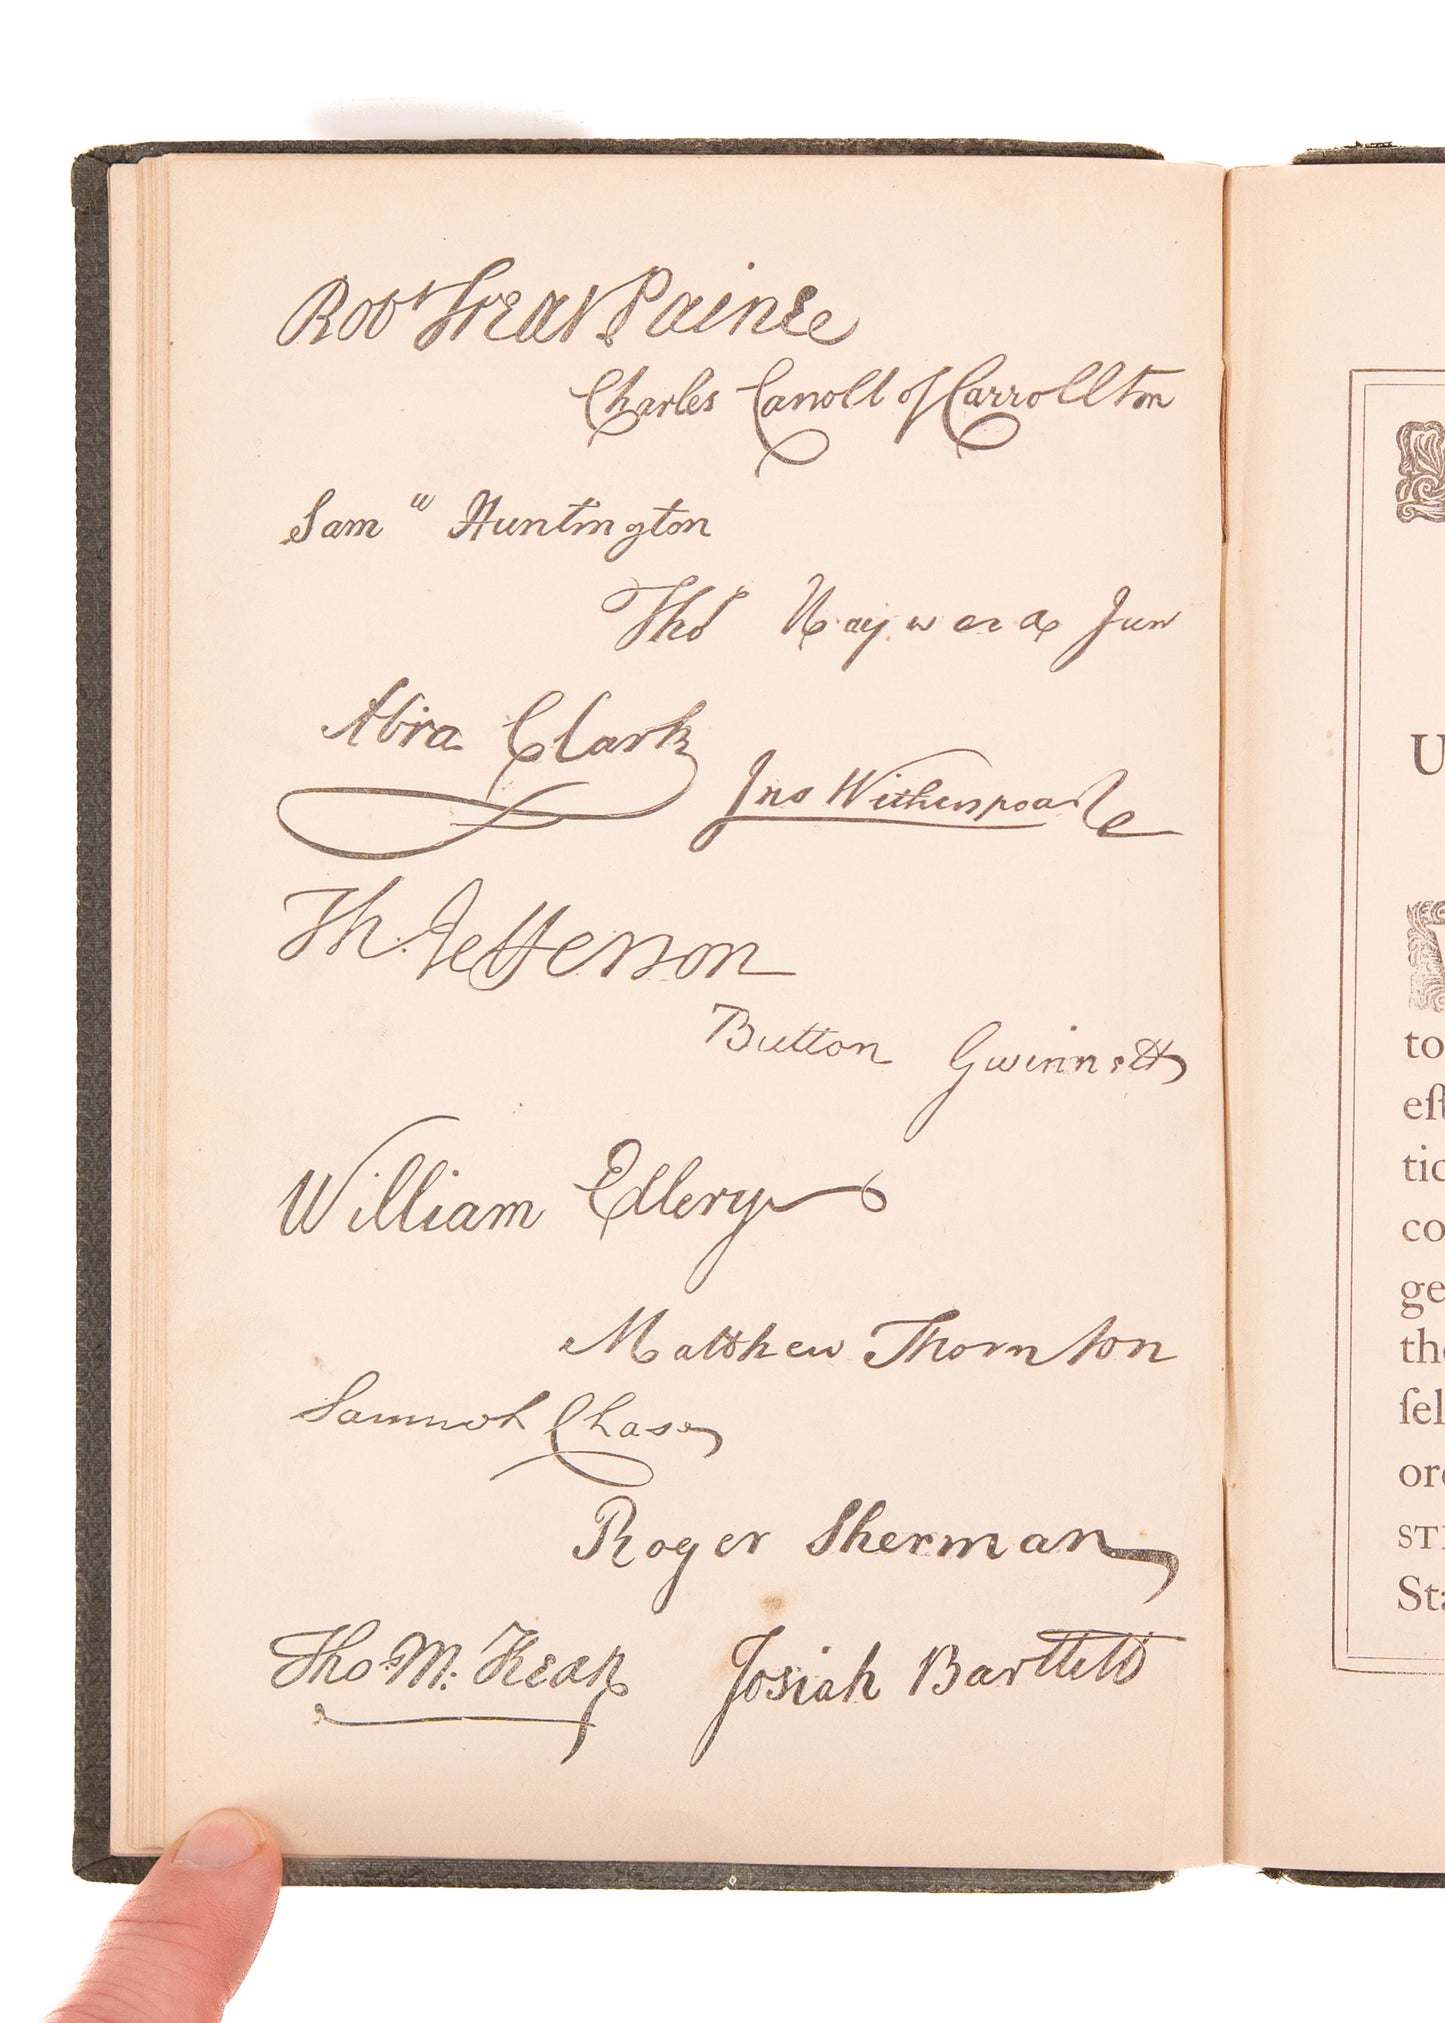 Robt Treat Paine
Charles Carroll of Carrollton
Sam " Huntington
Thos Hayward Junr
Abra Clark
Jno Witherspoon
Th Jefferson
Button Gwinnett
William Ellery
Matthew Thornton
Samuel Chase
Roger Sherman
Tho M: Kean
Josiah Bartlett
U
to
eſt
tic
co
ge
the
ſel
ord
STI
Sta